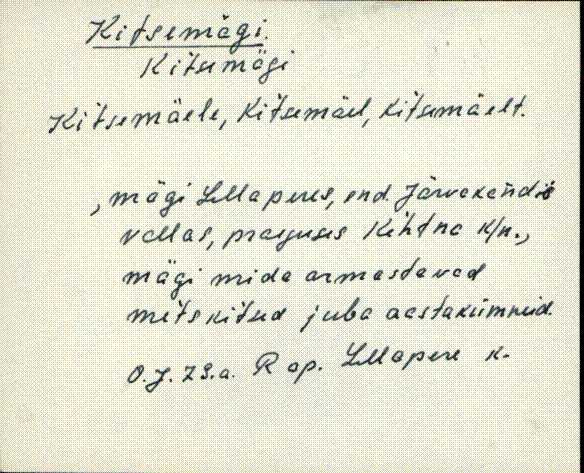 Kitsemägi.
Kitsemägi
Kitsemäele, Kitsemäel, Kitsemäelt.
, mägi Lellaperes, end. Järvakandis
vallas, praeguses Kehtna k/n.,
mägi mida armastavad
metskitsed juba aastakümneid.
O. J. 79.a. Rap. Lellapere k.